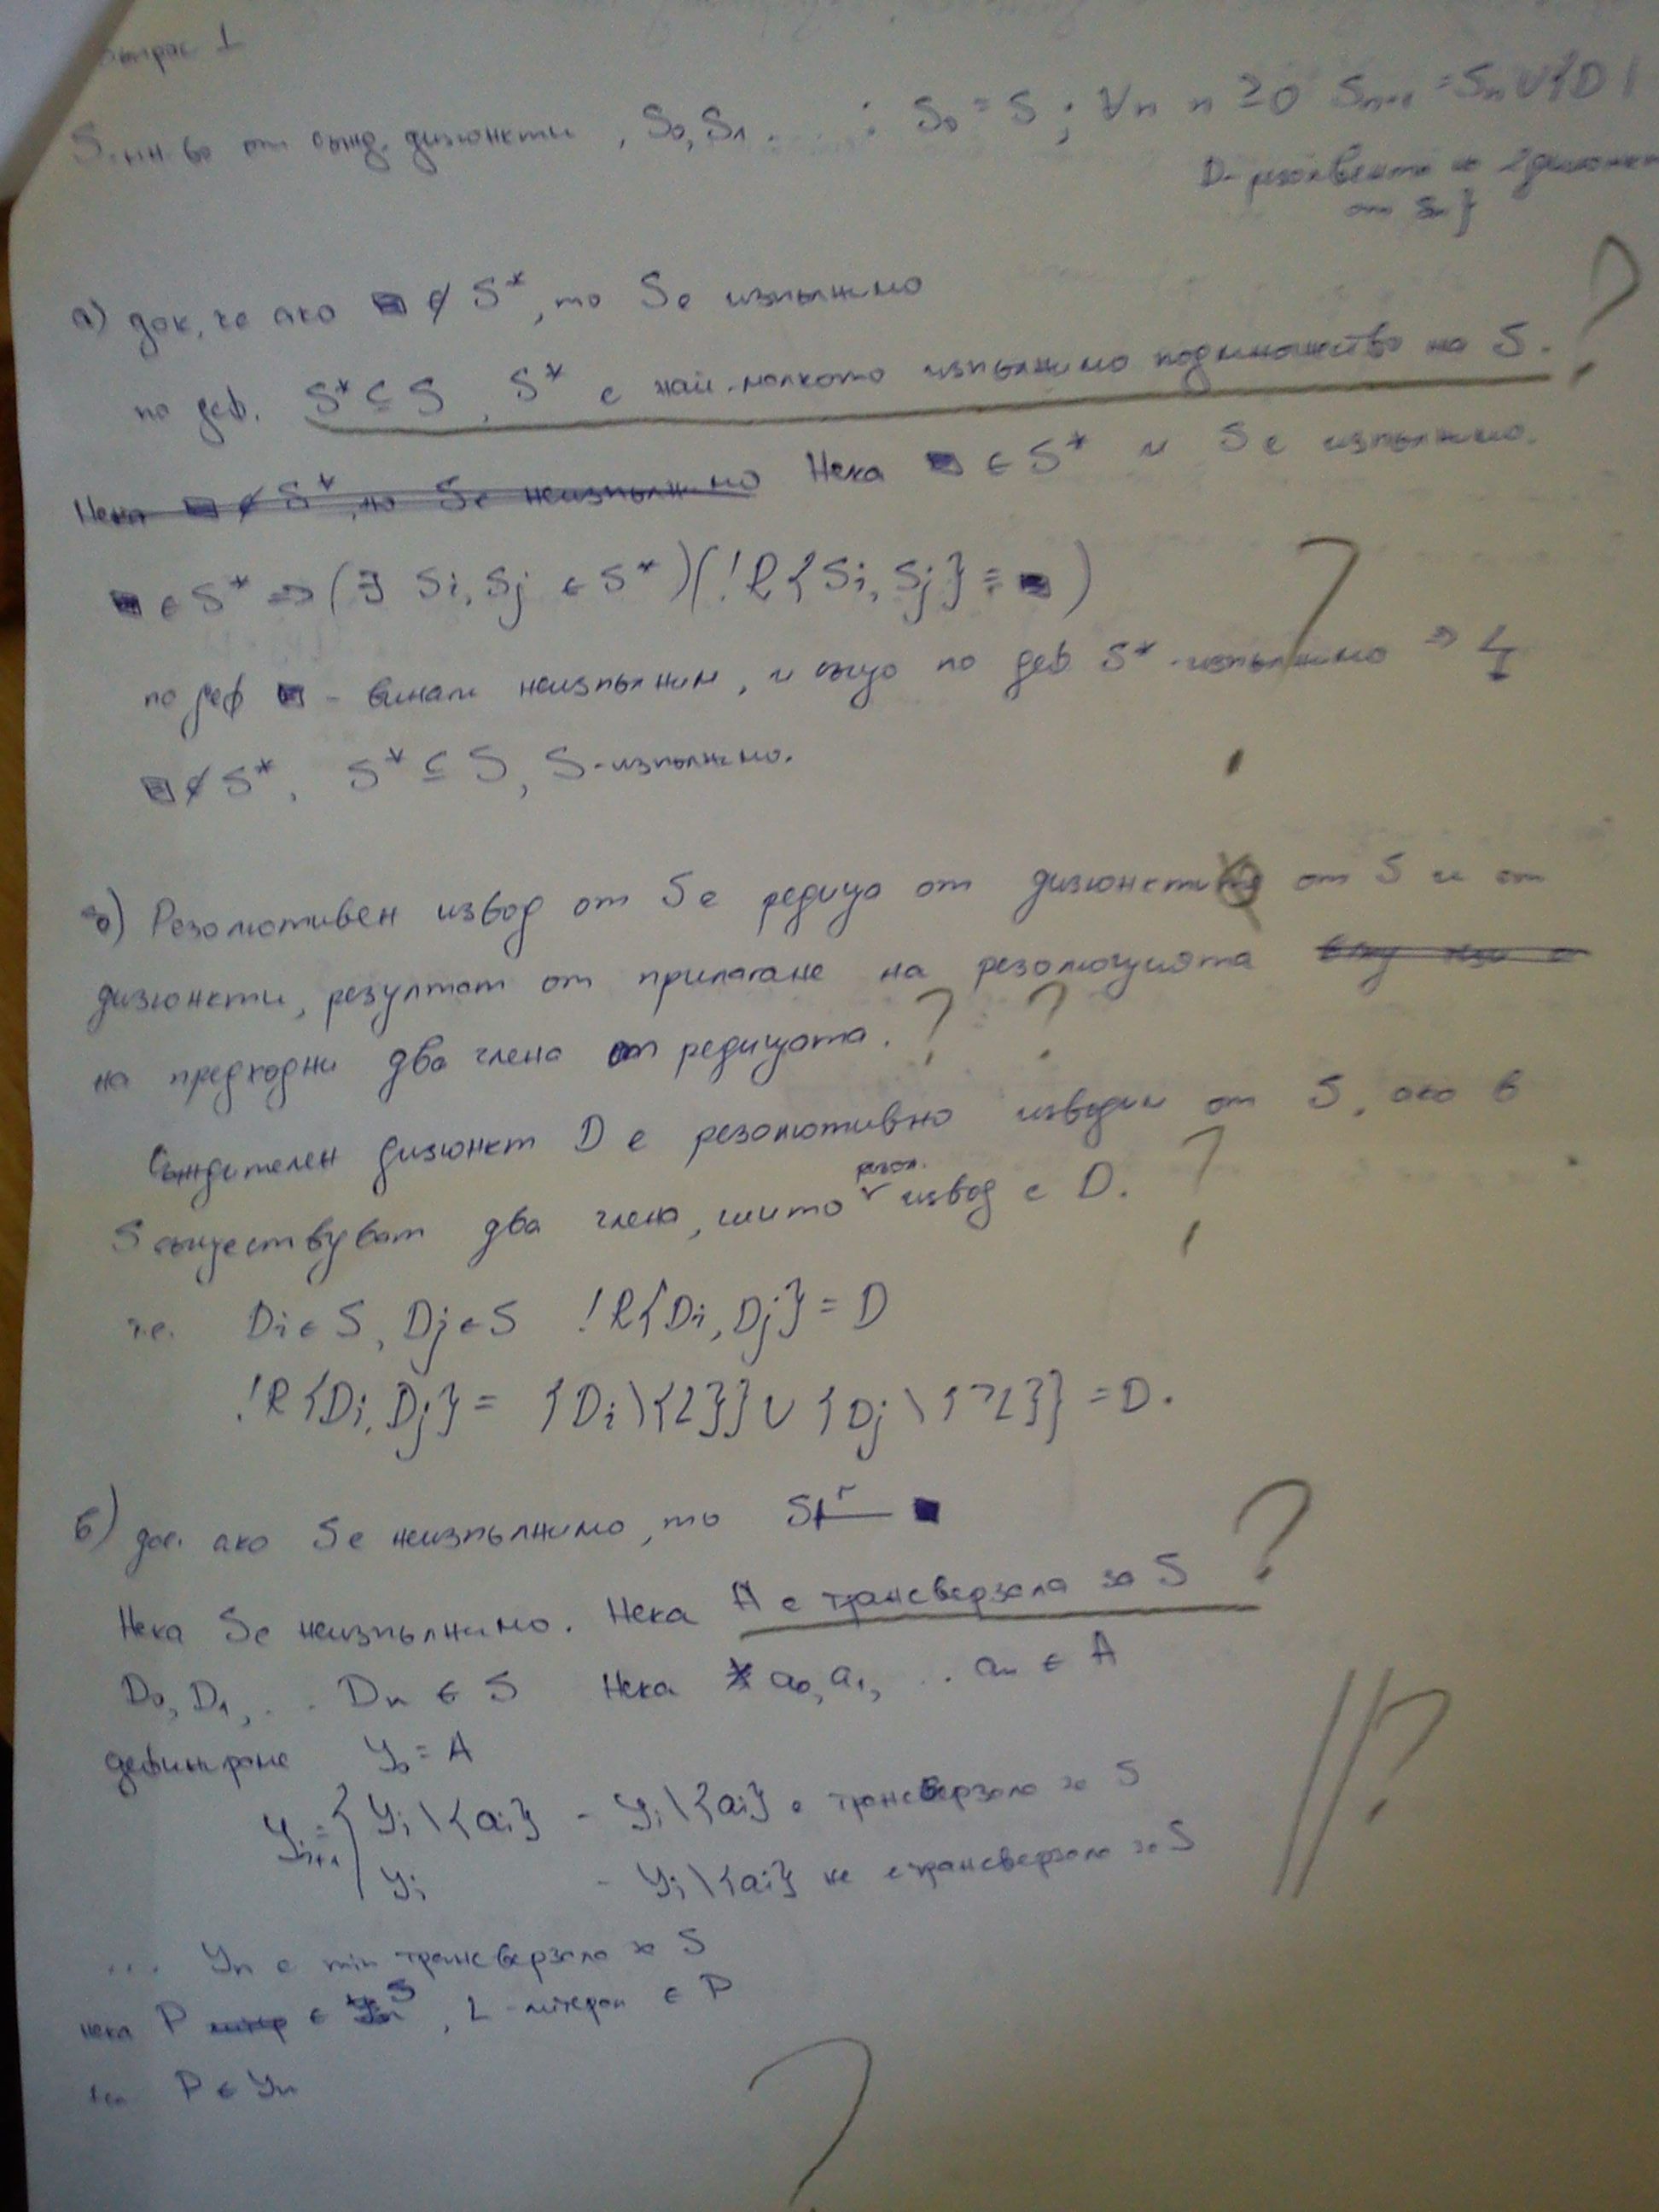 въпрос 1
S мн-во от съжд. дизюнкти, S₀, S₁ ... : S₀ = S ; ∀n n ≥ 0 Sₙ₊₁ = Sₙ ∪ {D |
D - резолвента на 2 дизюнкта
от Sₙ}
а) док, че ако ■ ∉ S*, то S е изпълнимо
?
по деф. S* ⊆ S, S* е най-малкото изпълнимо подмножество на S.
Нека ■ ∉ S*, но S е неизпълнимо Нека ■ ∈ S* и S е изпълнимо.
■ ∈ S* => (∃ Si, Sj ∈ S*)(!R{Si, Sj} = ■)
?
по деф ■ - винаги неизпълним, и също по деф S* - изпълнимо => ↯
■ ∉ S*, S* ⊆ S, S - изпълнимо.
б) Резолютивен извод от S е редица от дизюнкти от S и от
дизюнкти, резултат от прилагане на резолюцията
на предходни два члена от редицата. ? ?
Съждителен дизюнкт D е резолютивно изводим от S, ако в
S съществуват два члена, чиито резол. извод е D. ?
т.е. Di ∈ S, Dj ∈ S !R{Di, Dj} = D
!R{Di, Dj} = {Di\{L}} ∪ {Dj\{¬L}} = D.
в) док. ако S е неизпълнимо, то S ⊢ʳ ■
?
Нека S е неизпълнимо. Нека A е трансверзала за S
D₀, D₁, ... Dₙ ∈ S Нека a₀, a₁, ... aₙ ∈ A
дефинираме Y₀ = A
Yᵢ₊₁ = { Yᵢ\{aᵢ} - Yᵢ\{aᵢ} е трансверзала за S
Yᵢ - Yᵢ\{aᵢ} не е трансверзала за S
?
... Yₙ е min трансверзала за S
нека P ∈ S, L - литерал ∈ P
P ∈ Yₙ
?